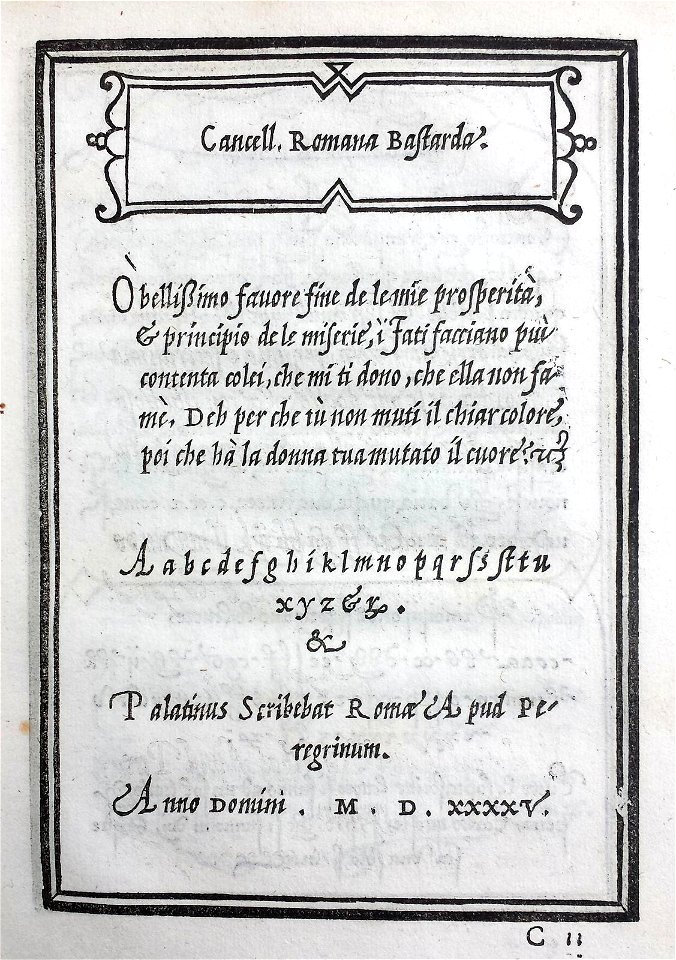 Cancell. Romana Bastarda.
Ò bellissimo favore fine de le mie prosperità,
& principio de le miserie, ì Fati facciano più
contenta colei, che mi ti dono, che ella non fa
mè. Deh per che tù non muti il chiar colore,
poi che hà la donna tua mutato il cuore?
A a b c d e f g h i k l m n o p q r ſ s ß ſt t u
x y z & ꝝ .
&
Palatinus Scribebat Romæ Apud Pe-
regrinum.
Anno Domini . M . D . XXXXV.
C ii